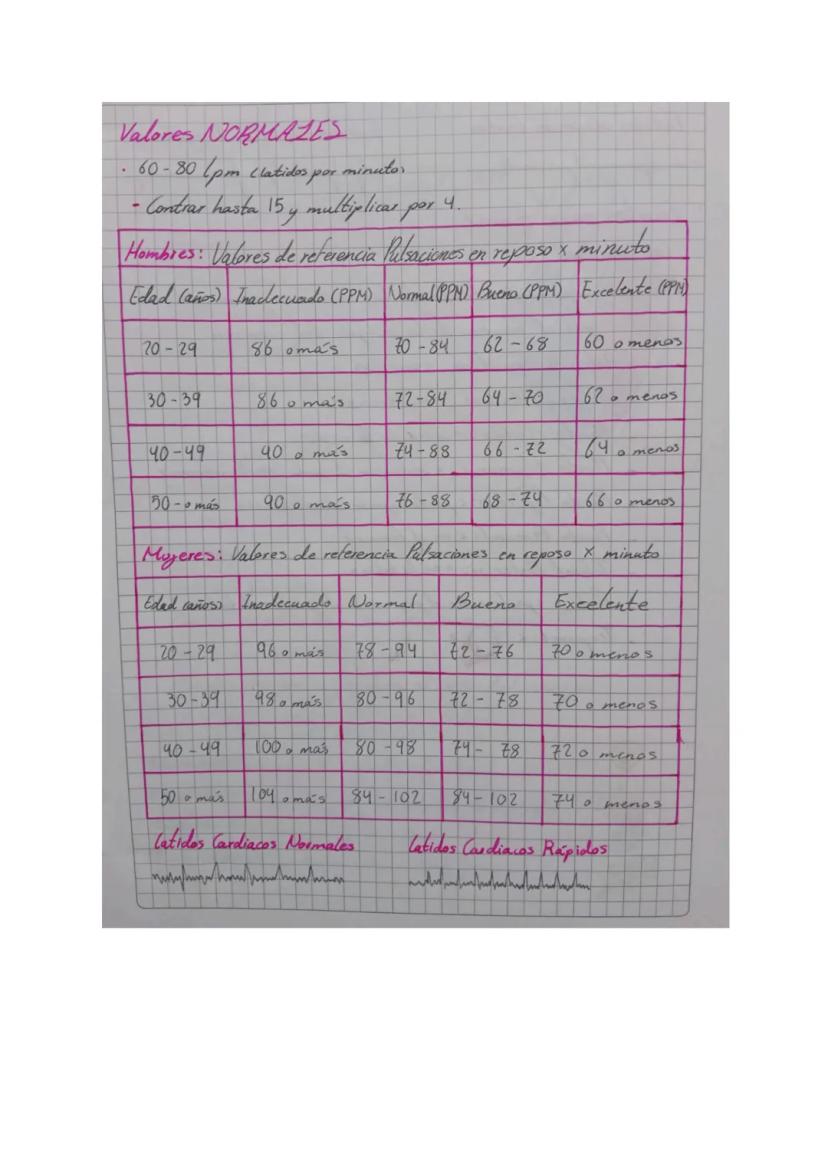 Valores NORMALES
· 60-80 lpm (latidos por minuto)
- Contrar hasta 15 y multiplicar por 4.
Hombres: Valores de referencia Pulsaciones en reposo x minuto
Edad (años) Inadecuado (PPM) Normal (PPM) Bueno (PPM) Excelente (PPM)
20-29 86 o más 70-84 62-68 60 o menos
30-39 86 o más 72-84 64-70 62 o menos
40-49 90 o más 74-88 66-72 64 o menos
50-o más 90 o más 76-88 68-74 66 o menos
Mujeres: Valores de referencia Pulsaciones en reposo x minuto
Edad (años) Inadecuado Normal Bueno Excelente
20-29 96 o más 78-94 72-76 70 o menos
30-39 98 o más 80-96 72-78 70 o menos
40-49 100 o más 80-98 74-78 72 o menos
50 o más 104 o más 84-102 84-102 74 o menos
Latidos Cardiacos Normales Latidos Cardiacos Rápidos